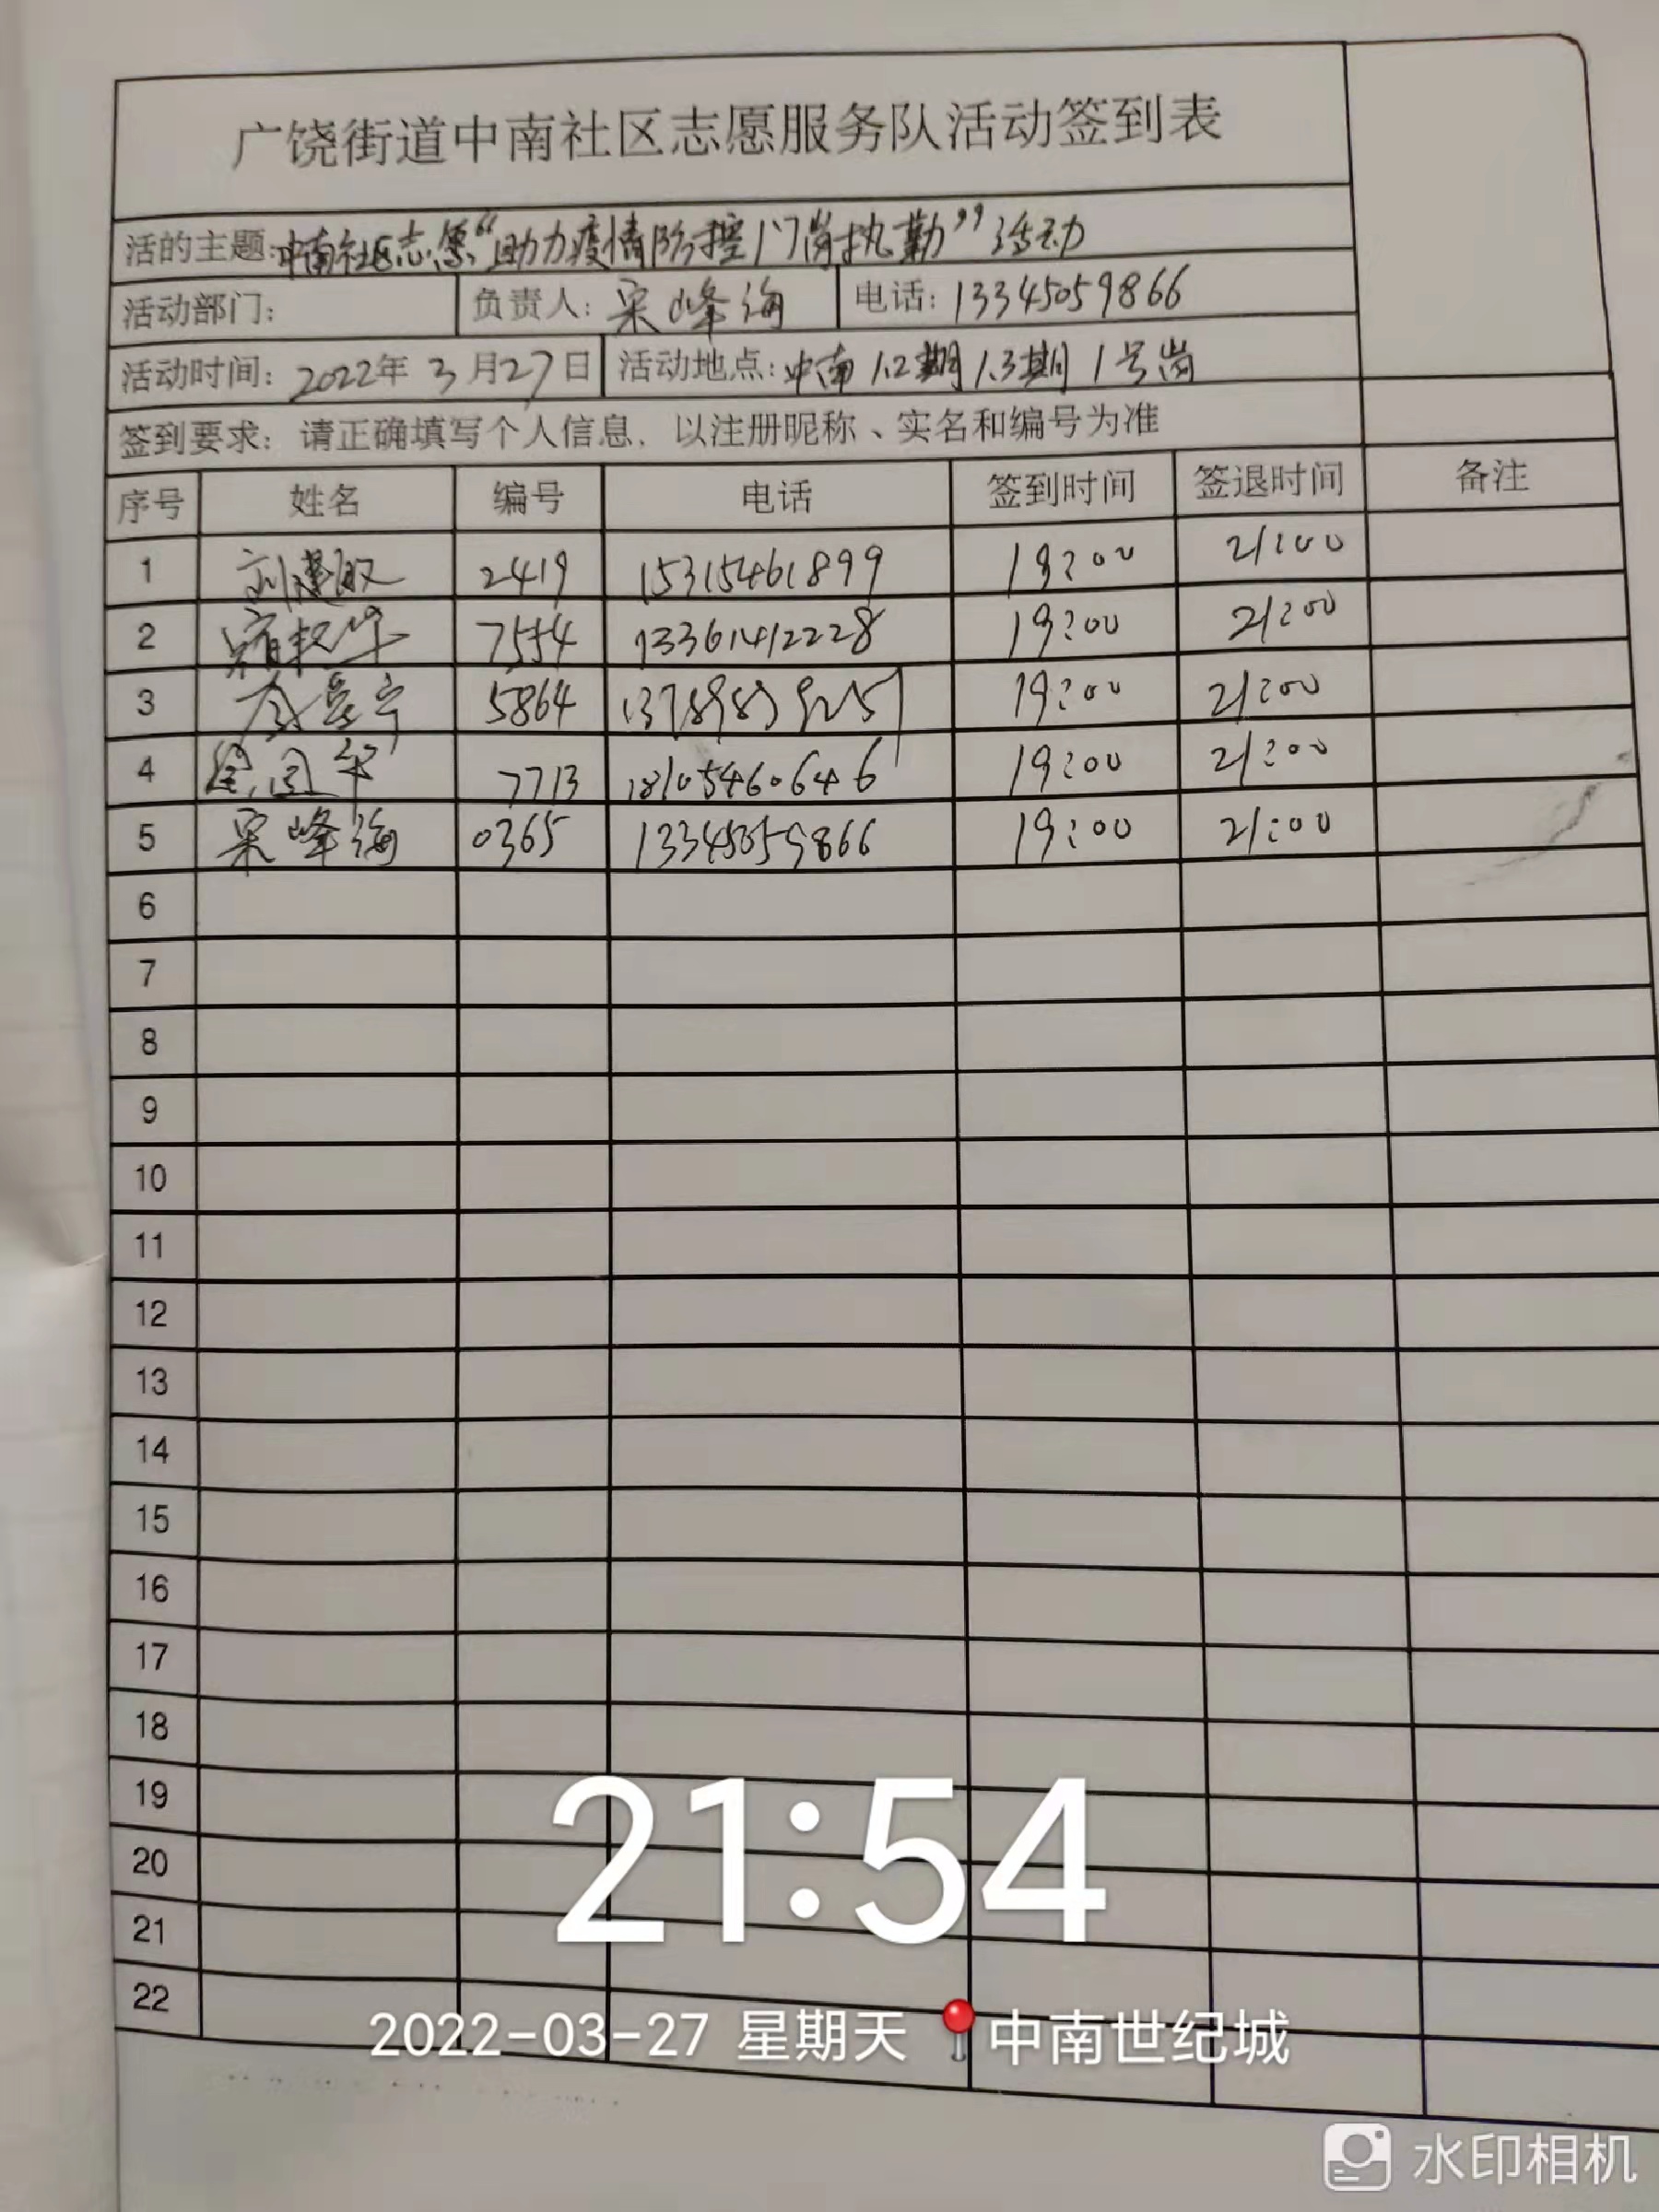 广饶街道中南社区志愿服务队活动签到表
活的主题:中南社区志愿“助力疫情防控门岗执勤”活动
活动部门: 负责人: 宋峰海 电话: 13345059866
活动时间: 2022年 3月27日 活动地点: 中南1.2期1.3期1号岗
签到要求: 请正确填写个人信息、以注册昵称、实名和编号为准
序号 姓名 编号 电话 签到时间 签退时间 备注
1 刘建敏 2419 15315461899 19:00 21:00
2 7554 13361412228 19:00 21:00
3 5864 19:00 21:00
4 7713 18105460646 19:00 21:00
5 宋峰海 0365 13345059866 19:00 21:00
6
7
8
9
10
11
12
13
14
15
16
17
18
19
20
21
22
21:54
2022-03-27 星期天 中南世纪城
水印相机